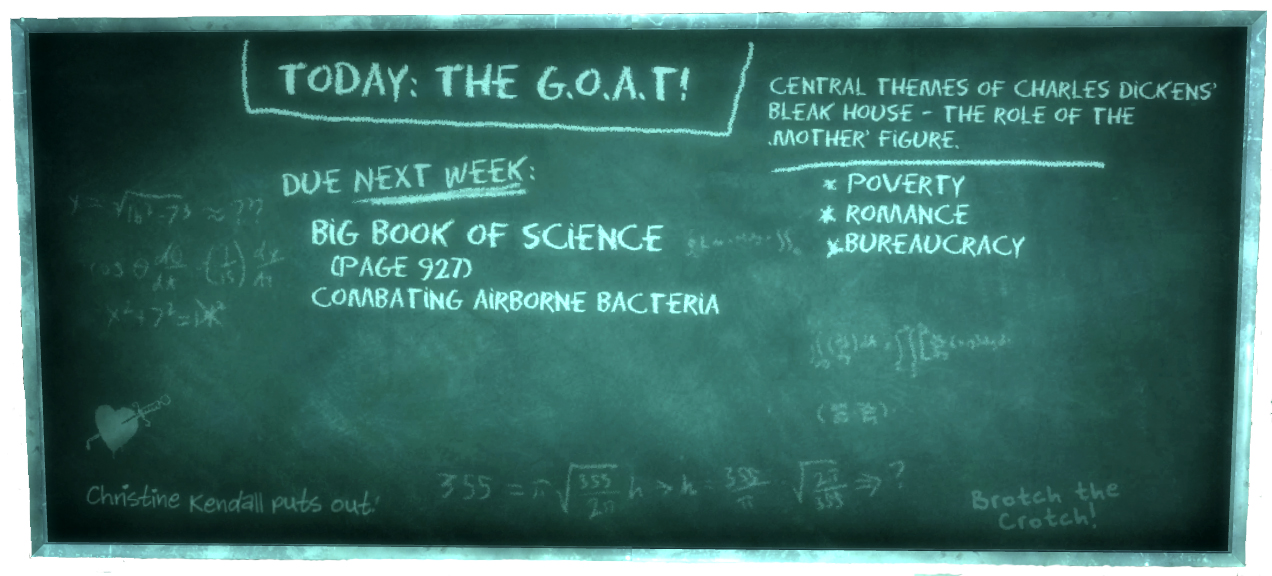 TODAY: THE G.O.A.T!
CENTRAL THEMES OF CHARLES DICKENS'
BLEAK HOUSE - THE ROLE OF THE
'MOTHER' FIGURE.
* POVERTY
* ROMANCE
* BUREAUCRACY
DUE NEXT WEEK:
BIG BOOK OF SCIENCE
(PAGE 927)
COMBATING AIRBORNE BACTERIA
355 = π √(355/2π) h > h = 355/π · √(2π/355) => ?
Christine Kendall puts out!
Brotch the
Crotch!